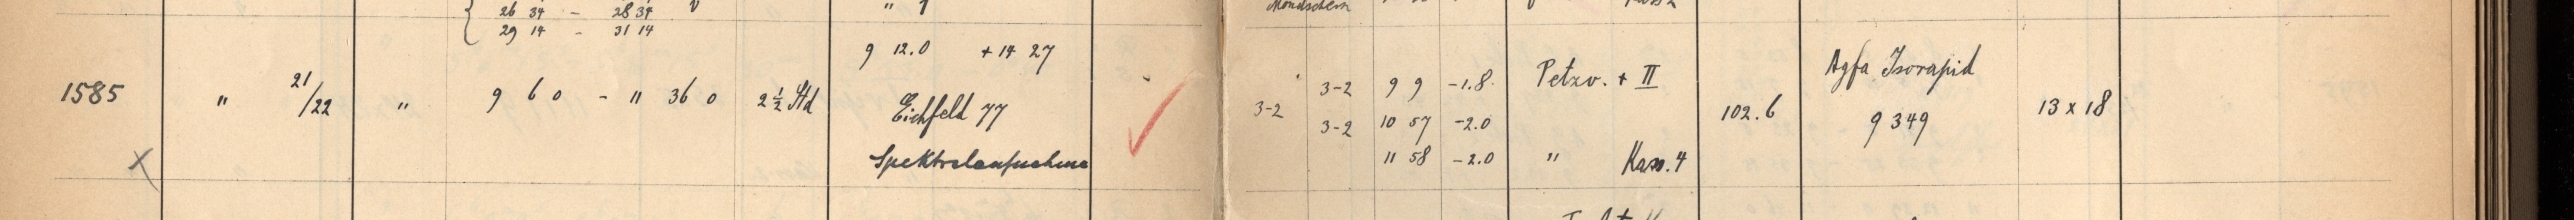 26 34 - 28 34 "
29 14 - 31 14
" 9
Mondschein
9 12.0 + 14 27
1585 " 21/22 " 9 6 0 - 11 36 0 2 ½ Std
Eichfeld 77
Spektralaufnahme
X
3-2 3-2 9 9 -1.8 Petzv. + II
3-2 10 57 -2.0
11 58 -2.0 " Kass. 4
102.6
Agfa Isorapid
9349
13 x 18